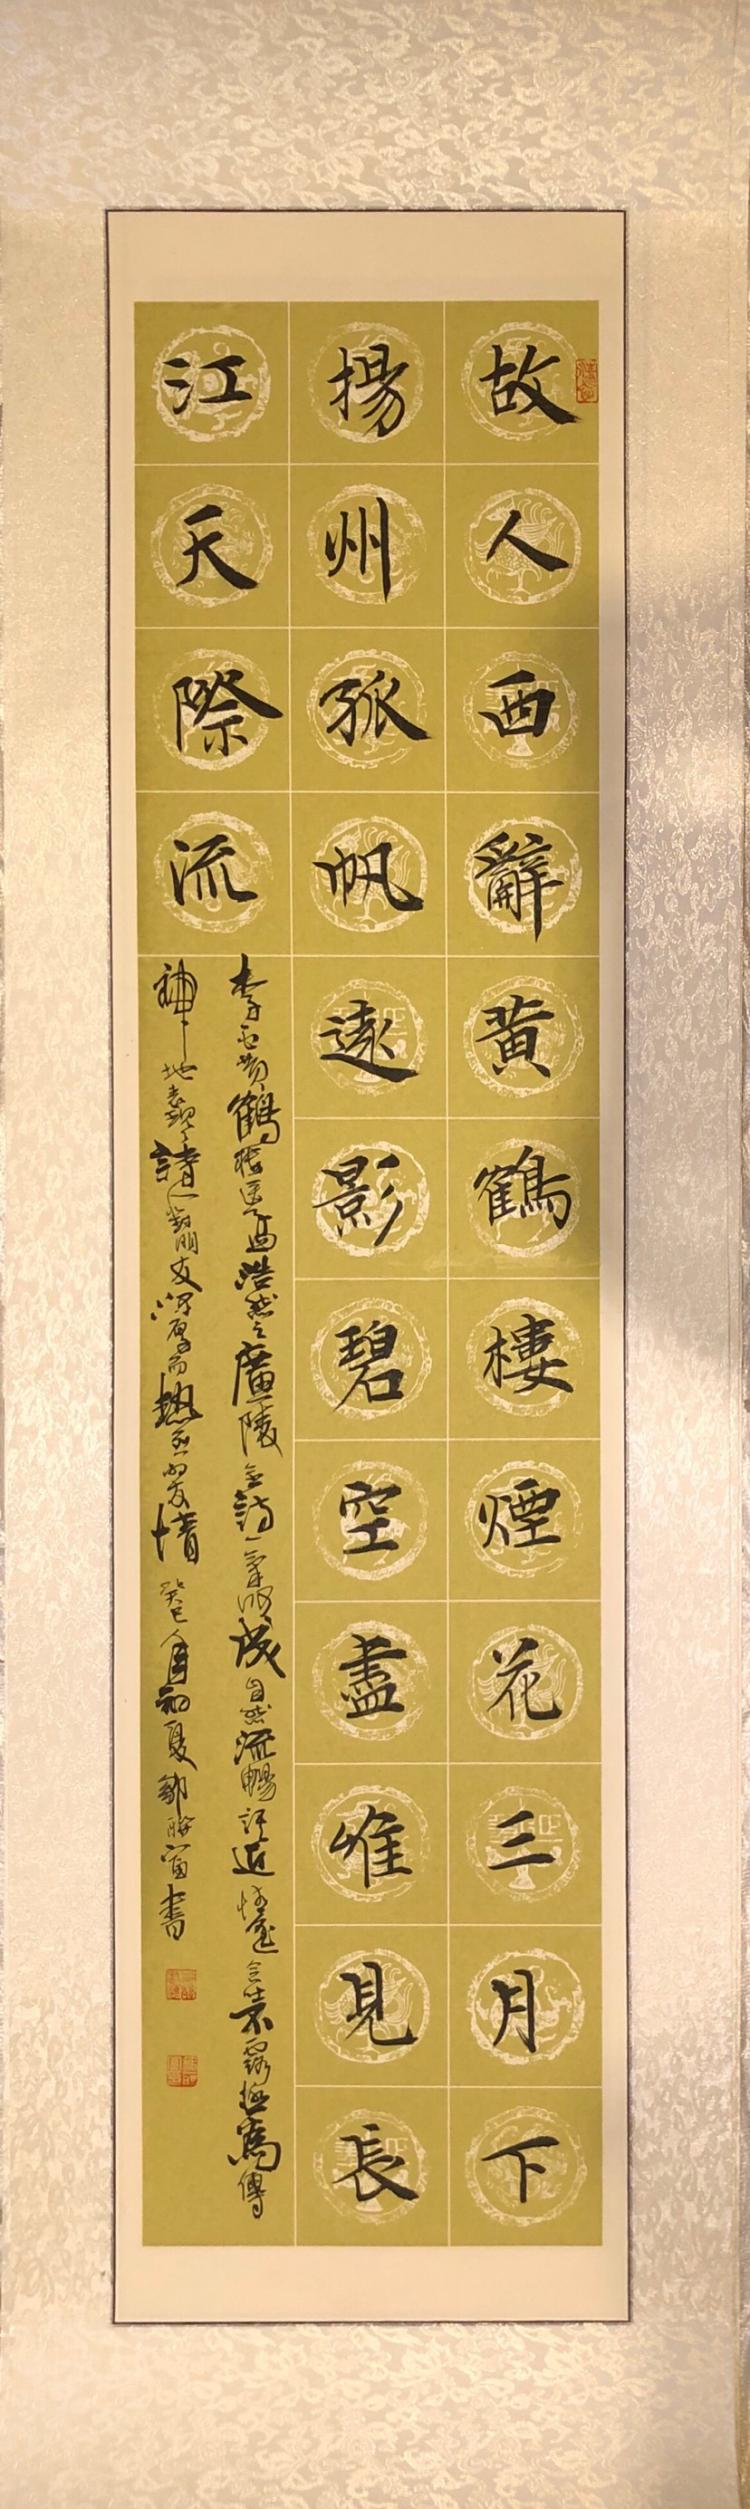 故人西辭黃鶴樓煙花三月下
揚州孤帆遠影碧空盡惟見長
江天際流
李白黄鶴樓送孟浩然之廣陵 全詩一氣呵成 自然流暢 評近 言 表露 極 傳
神地表現了詩人對朋友深厚而熱烈的友情 癸巳年初夏 書